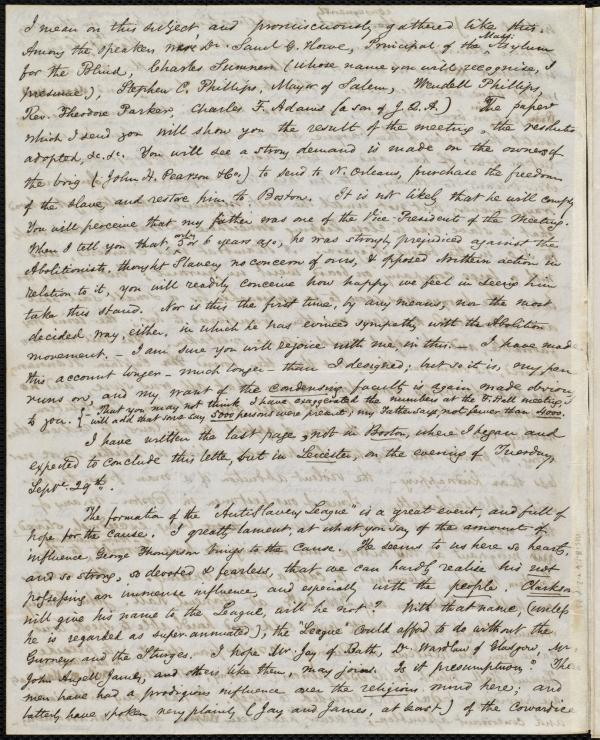 I mean on this subject and promiscuously gathered like this.
Among the speakers were Dr. Saml G. Howe, Principal of the Mass: Asylum
for the Blind, Charles Sumner (whose name you will recognize, I
presume), Stephen C. Phillips, Mayor of Salem, Wendell Phillips,
Rev. Theodore Parker, Charles F. Adams (a son of J.Q.A.) The paper
which I send you will show you the result of the meeting, the resolutions
adopted, &c. &c. You will see a strong demand is made on the owners of
the brig (John H. Pearson & Co.) to send to N. Orleans, purchase the freedom
of the slave, and restore him to Boston. It is not likely that he will comply.
You will perceive that my father was one of the Vice Presidents of the Meeting.
When I tell you that, only 5 or 6 years ago, he was strongly prejudiced against the
Abolitionists, thought Slavery no concern of ours, & opposed Northern action in
relation to it, you will readily conceive how happy we feel in seeing him
take this stand. Nor is this the first time, by any means, nor the most
decided way, either, in which he has evinced sympathy with the Abolition
movement. – I am sure you will rejoice with me, in this. – I have made
this account longer – much longer – than I designed; but so it is, my pen
runs on, and my want of the condensing faculty is again made obvious
to you. {– That you may not think I have exaggerated the numbers at the F. Hall meeting I
will add that some say 5000 persons were present; my Father says not fewer than 4000.
I have written the last page, not in Boston, where I began and
expected to conclude this letter, but in Leicester, on the evening of Tuesday,
Septr. 29th.
The formation of the "AntiSlavery League" is a great event, and full of
hope for the cause. I greatly lament, at what you say of the amount of
influence George Thompson brings to the cause. He seems to us here so hearty,
and so strong, so devoted & fearless, that we can hardly realise his not
possessing an immense influence, and especially with the people. Clarkson
will give his name to the League, will he not? With that name (unless
he is regarded as superannuated), the "League" could afford to do without the
Gurneys and the Sturges. I hope Mr. Jay of Bath, Dr. Wardlaw of Glasgow, Mr.
John Angell James, and others like them, may join. Is it presumptuous? The
men have had a prodigious influence over the religious mind here; and
latterly have spoken very plainly (Jay and James, at least) of the cowardice